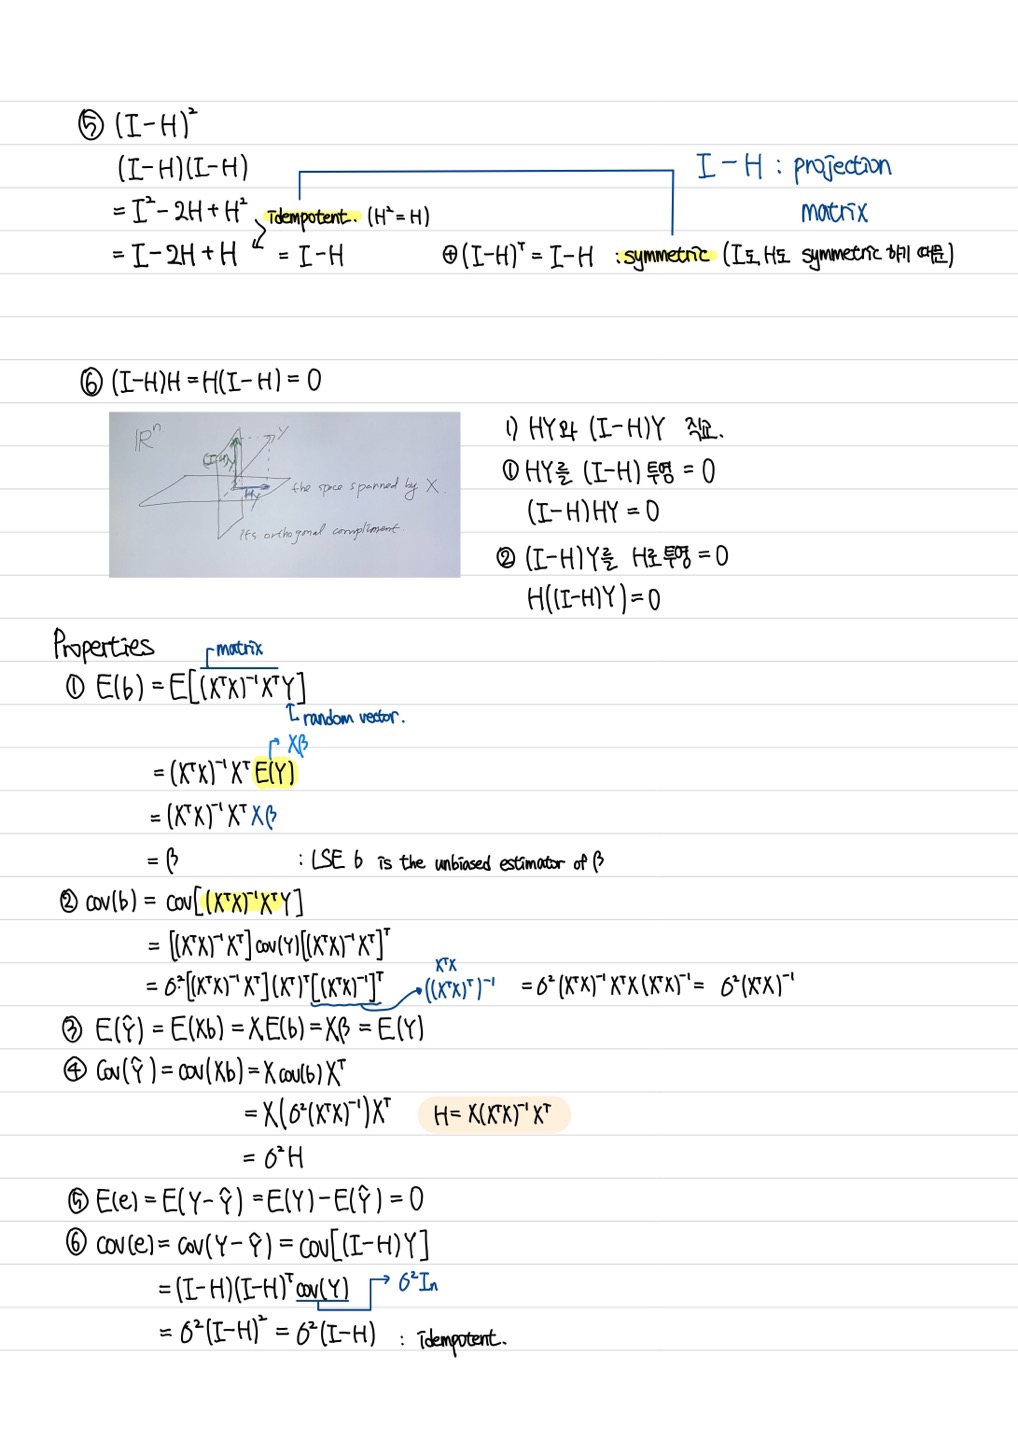 ⑤ (I-H)²
(I-H)(I-H)
I-H : projection
matrix
= I² - 2H + H² idempotent. (H² = H)
= I - 2H + H = I-H ⊕ (I-H)ᵀ = I-H : symmetric (I도, H도 symmetric 하기 때문)
⑥ (I-H)H = H(I-H) = 0
ℝⁿ
Y
(I-H)Y
HY
the space spanned by X.
its orthogonal compliment
1) HY와 (I-H)Y 직교.
① HY를 (I-H) 투영 = 0
(I-H)HY = 0
② (I-H)Y를 H로 투영 = 0
H((I-H)Y) = 0
Properties
matrix
① E(b) = E[(XᵀX)⁻¹XᵀY]
random vector.
Xβ
= (XᵀX)⁻¹Xᵀ E(Y)
= (XᵀX)⁻¹Xᵀ Xβ
= β : LSE b is the unbiased estimator of β
② cov(b) = cov[(XᵀX)⁻¹XᵀY]
= [(XᵀX)⁻¹Xᵀ] cov(Y) [(XᵀX)⁻¹Xᵀ]ᵀ
XᵀX
= σ²[(XᵀX)⁻¹Xᵀ](Xᵀ)ᵀ[(XᵀX)⁻¹]ᵀ ((XᵀX)ᵀ)⁻¹ = σ²(XᵀX)⁻¹XᵀX(XᵀX)⁻¹ = σ²(XᵀX)⁻¹
③ E(Ŷ) = E(Xb) = XE(b) = Xβ = E(Y)
④ Cov(Ŷ) = cov(Xb) = X cov(b) Xᵀ
= X(σ²(XᵀX)⁻¹)Xᵀ H = X(XᵀX)⁻¹Xᵀ
= σ²H
⑤ E(e) = E(Y-Ŷ) = E(Y) - E(Ŷ) = 0
⑥ cov(e) = cov(Y-Ŷ) = cov[(I-H)Y]
= (I-H)(I-H)ᵀ cov(Y) σ²In
= σ²(I-H)² = σ²(I-H) : idempotent.